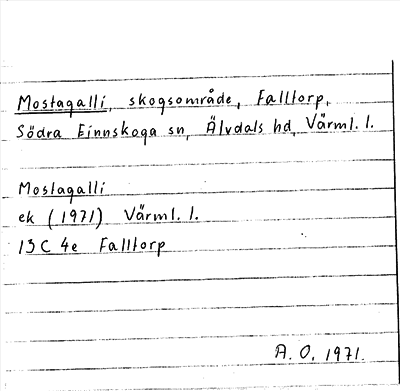 Mostagalli, skogsområde, Falltorp,
Södra Finnskoga sn, Älvdals hd, Värml. l.
Mostagalli
ek (1971) Värml. l.
13C 4e Falltorp
A. O. 1971.